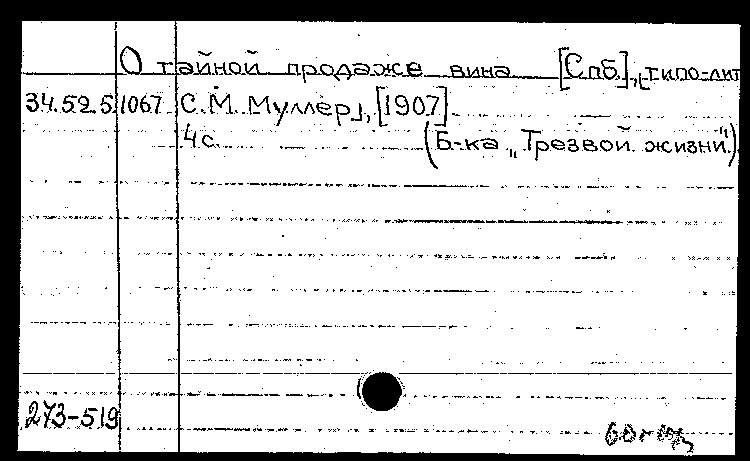 О тайной продаже вина [Спб], [типо-лит
34.52.5 1067 С.М. Муллер], [1907].
4с. (Б-ка „Трезвой жизни")
273-519